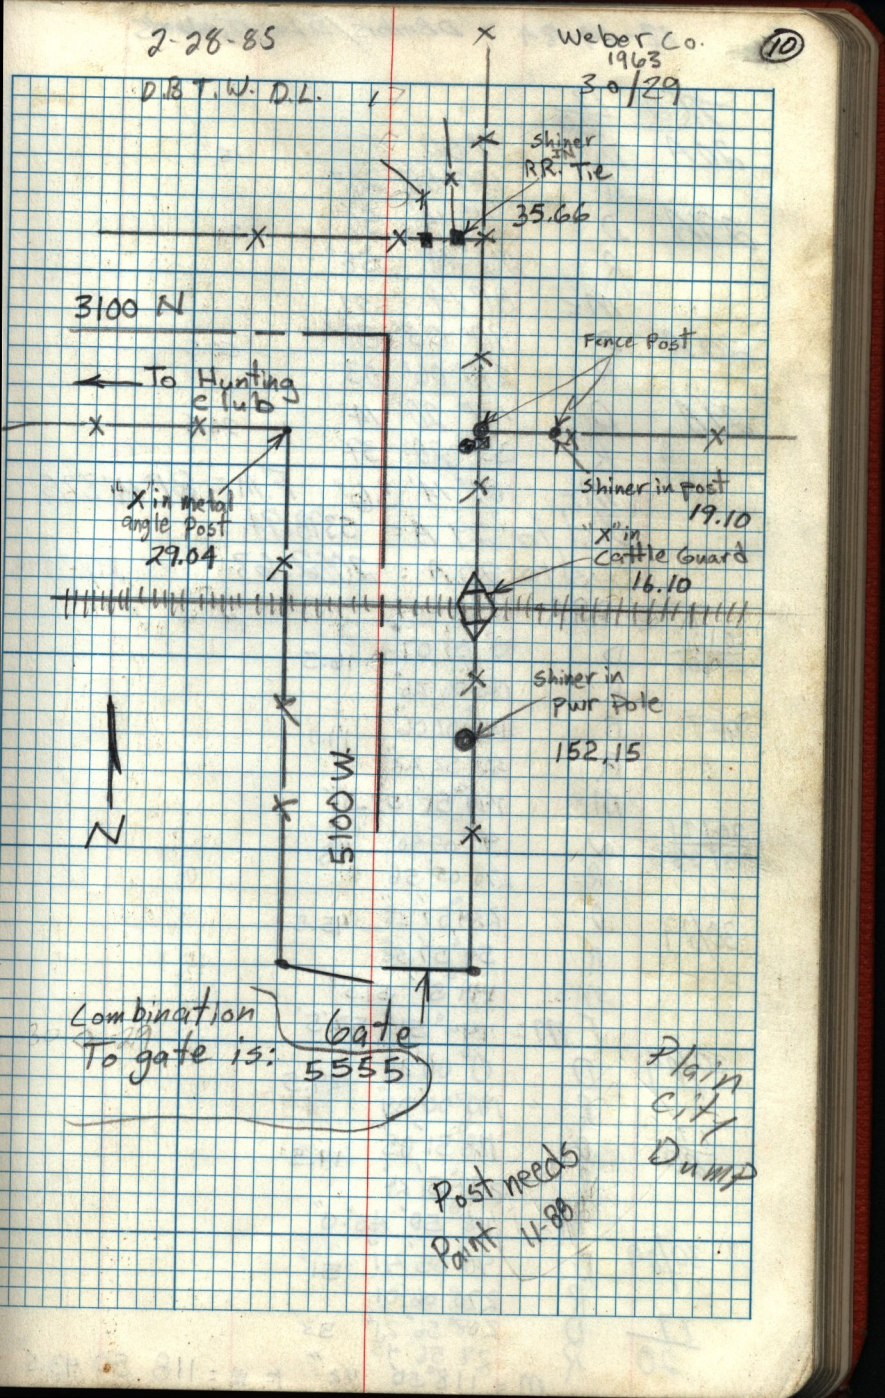 2-28-85
Weber Co.
10
1963
30/29
D.B T.W. D.L.
Shiner
IN
R.R. Tie
35.66
3100 N
Fence Post
To Hunting
Club
"X" in metal
angle Post
29.04
Shiner in post
19.10
"X" in
Cattle Guard
16.10
Shiner in
pwr Pole
152.15
5100 W
N
Combination
To gate is:
5555
Gate
Plain
City
Dump
Post needs
Paint 11-88